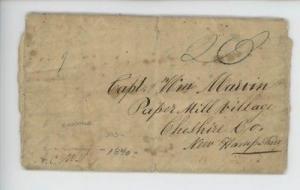 25
Capt. Wm Marvin
Paper Mill Village
Cheshire Co.
New Hampshire
1840